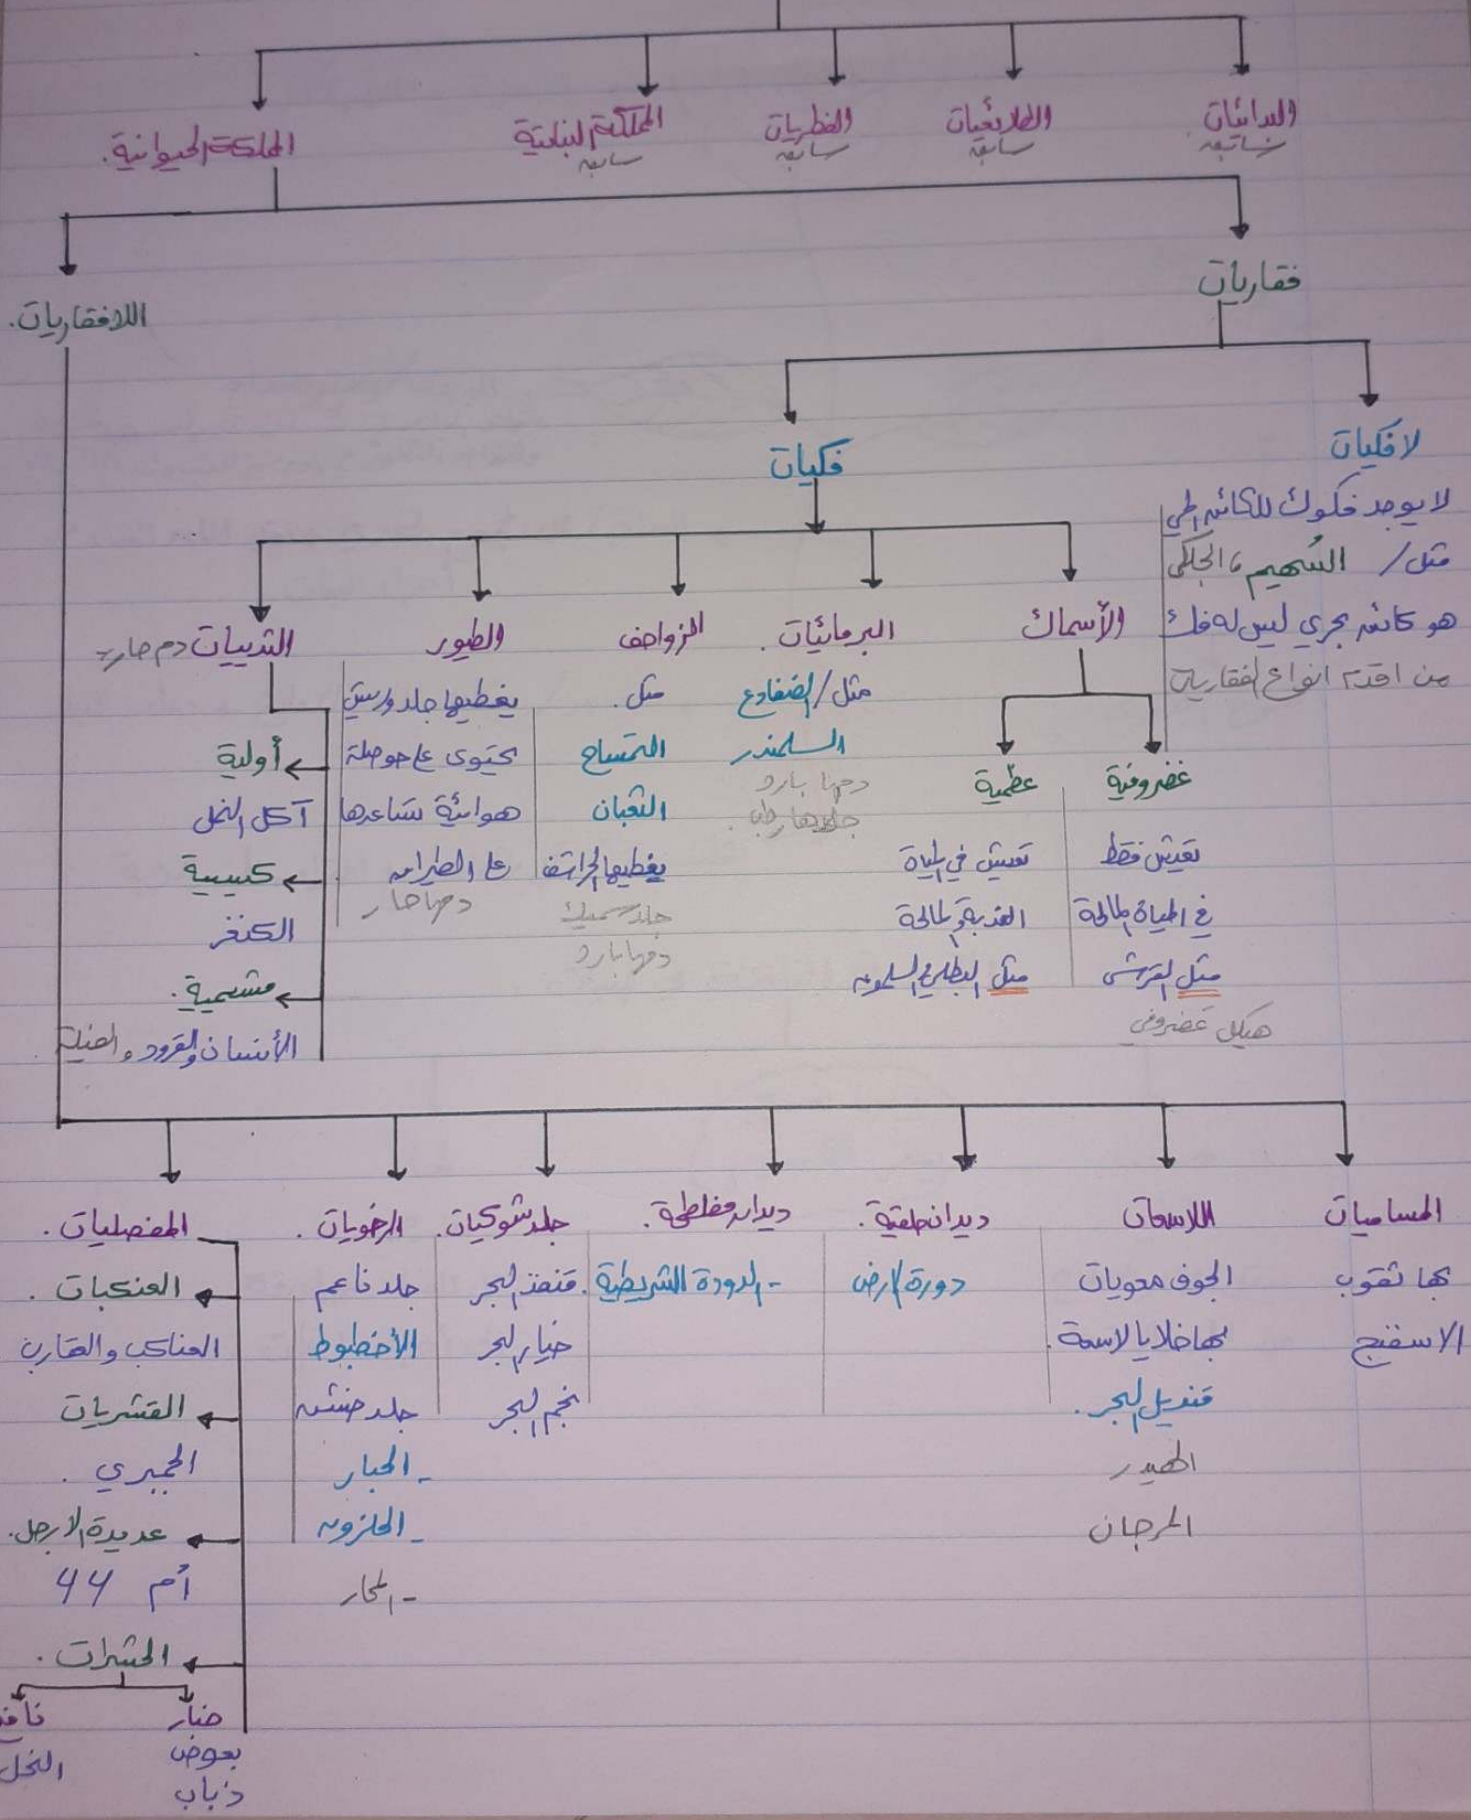 البدائيات
سابقه
الطلائعيات
سابقه
الفطريات
سابقه
المملكة النباتية
سابقه
المملكة الحيوانية.
فقاريات
اللافقاريات.
لا فكيات
لا يوجد فكوك للكائن الحي
مثل / السُهيم، الجلكى
هو كائن بحري ليس له فك
من اقدم انواع الفقاريات
فكيات
الأسماك
غضروفية
تعيش فقط
في المياة المالحة
مثل القرش
هيكل غضروفي
عظمية
تعيش في المياة
العذبة والمالحة
مثل البطلي والسلمون
البرمائيات.
مثل / الضفادع
السلمندر
دمها بارد
جلدها رطب.
الزواحف
مثل.
التمساح
الثعبان
يغطيها الحراشف
جلد سميك
دمها بارد
الطيور
يغطيها جلد وريش
يحتوى ع حوصلة
هوائية تساعدها
ع الطيران
دمها حار
الثدييات دم حار
أولية
آكل النمل
كيسية
الكنغر
مشيمية.
الأنسان والقرود والفيلة
المساميات
بها ثقوب
الاسفنج
اللاسعات
الجوف معويات
بها خلايا لاسعة.
قنديل البحر.
الهيدر
المرجان
ديدان حلقية.
دورة الارض
ديدان مفلطحة.
- الدودة الشريطية.
جلد شوكيات.
قنفذ البحر
خيار البحر
نجم البحر
الرخويات.
جلد ناعم
الأخطبوط
جلد خشن
- الحبار
- الحلزون
- المحار
المفصليات.
العنكبات.
العناكب والعقارب
القشريات
الجمبري.
عديدة الارجل.
أم 44
الحشرات.
ضار
بعوض
ذباب
نافع
النحل